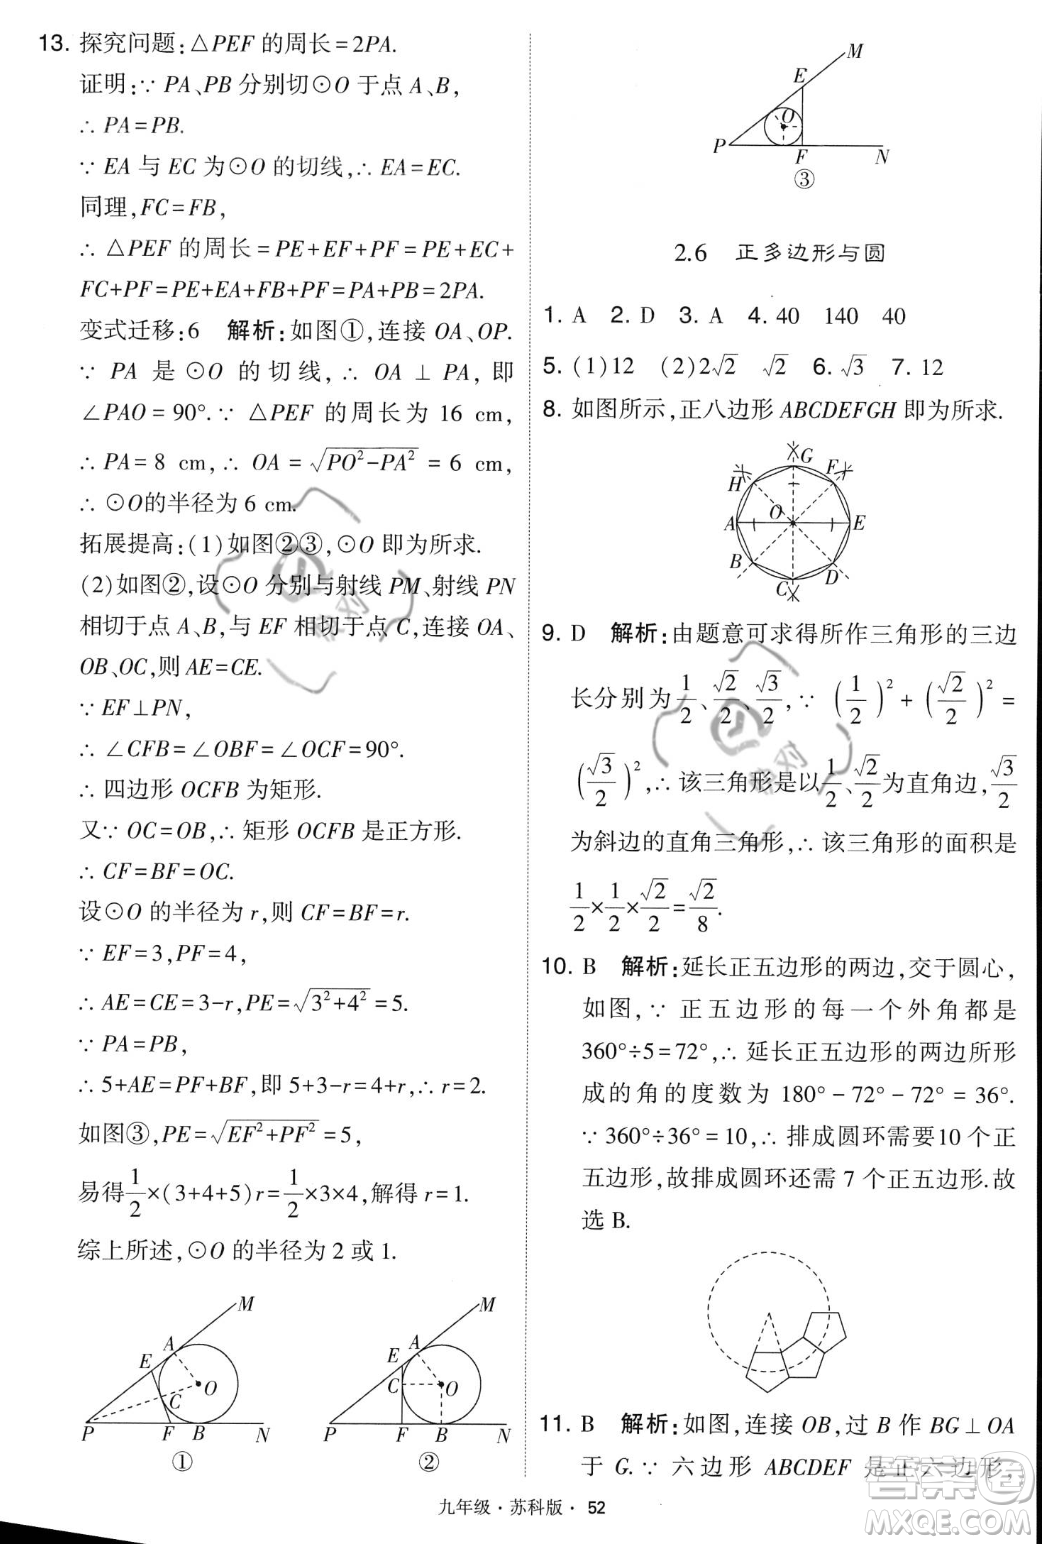 13. 探究问题:△PEF 的周长=2PA.
证明:∵ PA、PB 分别切⊙O 于点 A、B,
∴ PA=PB.
∵ EA 与 EC 为⊙O 的切线,∴ EA=EC.
同理,FC=FB,
∴ △PEF 的周长=PE+EF+PF=PE+EC+
FC+PF=PE+EA+FB+PF=PA+PB=2PA.
变式迁移:6 解析:如图①,连接 OA、OP.
∵ PA 是 ⊙O 的切线,∴ OA ⊥ PA, 即
∠PAO=90°.∵ △PEF 的周长为 16 cm,
∴ PA=8 cm,∴ OA=√(PO²-PA²)=6 cm,
∴ ⊙O的半径为6 cm.
拓展提高:(1)如图②③,⊙O 即为所求.
(2)如图②,设⊙O 分别与射线 PM、射线 PN
相切于点 A、B,与 EF 相切于点 C,连接 OA、
OB、OC,则 AE=CE.
∵ EF⊥PN,
∴ ∠CFB=∠OBF=∠OCF=90°.
∴ 四边形 OCFB 为矩形.
又∵ OC=OB,∴ 矩形 OCFB 是正方形.
∴ CF=BF=OC.
设⊙O 的半径为 r,则 CF=BF=r.
∵ EF=3,PF=4,
∴ AE=CE=3-r,PE=√(3²+4²)=5.
∵ PA=PB,
∴ 5+AE=PF+BF,即 5+3-r=4+r,∴ r=2.
如图③,PE=√(EF²+PF²)=5,
易得1/2×(3+4+5)r=1/2×3×4,解得 r=1.
综上所述,⊙O 的半径为 2 或 1.
M
A
E
O
C
P F B N
①
M
A
E
C O
P F B N
②
M
E
O
P F N
③
2.6 正多边形与圆
1. A 2. D 3. A 4. 40 140 40
5. (1)12 (2)2√2 √2 6. √3 7. 12
8. 如图所示,正八边形 ABCDEFGH 即为所求.
G
H F
A O E
B D
C
9. D 解析:由题意可求得所作三角形的三边
长分别为1/2、√2/2、√3/2,∵ (1/2)²+(√2/2)²=
(√3/2)²,∴ 该三角形是以1/2、√2/2为直角边,√3/2
为斜边的直角三角形,∴ 该三角形的面积是
1/2×1/2×√2/2=√2/8.
10. B 解析:延长正五边形的两边,交于圆心,
如图,∵ 正五边形的每一个外角都是
360°÷5=72°,∴ 延长正五边形的两边所形
成的角的度数为 180°-72°-72°=36°.
∵ 360°÷36°=10,∴ 排成圆环需要10 个正
五边形,故排成圆环还需 7 个正五边形.故
选 B.
11. B 解析:如图,连接 OB,过 B 作 BG⊥OA
于 G.∵ 六边形 ABCDEF 是正六边形,
九年级·苏科版·52
答案圈
MXQE.COM